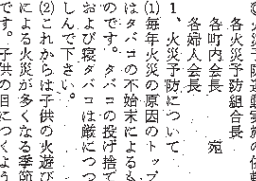 各火災予防組合長
各町内会長　　宛
各婦人会長
1、火災予防について
(1)毎年火災の原因のトップ
はタバコの不始末によるも
のです。タバコの投げ捨て
および寝タバコは厳につつ
しんで下さい。
(2)これからは子供の火遊び
による火災が多くなる季節
です。子供の目につくよう